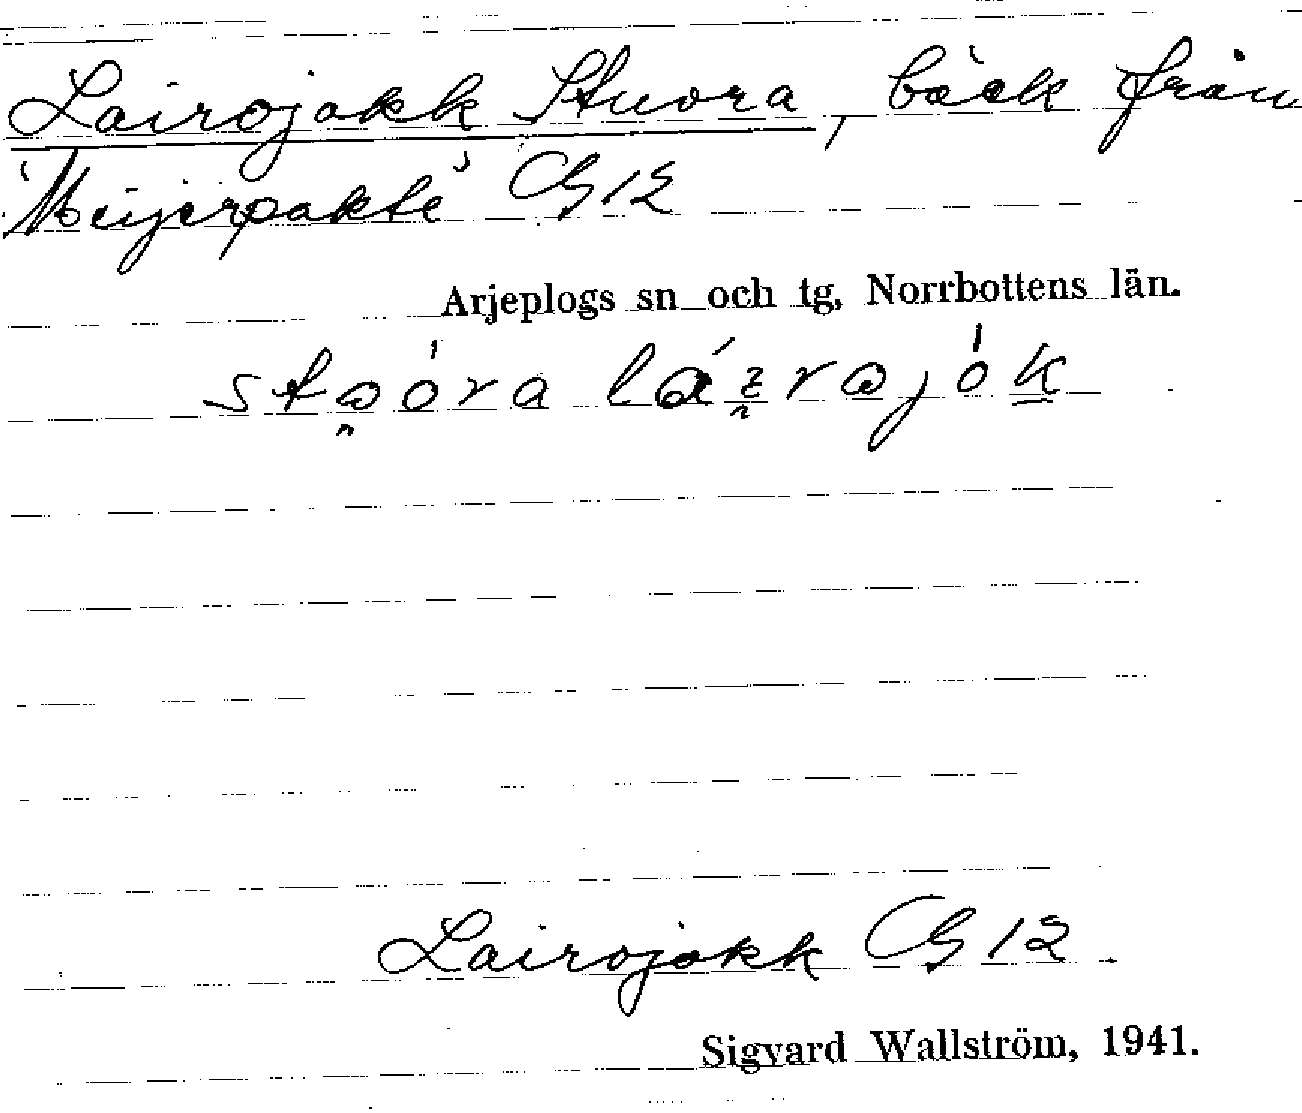 Lairojokk Stuora, bäck från
'Meijerpakte' G 12
Arjeplogs sn och tg, Norrbottens län.
Lairojokk G 12
Sigvard Wallström, 1941.